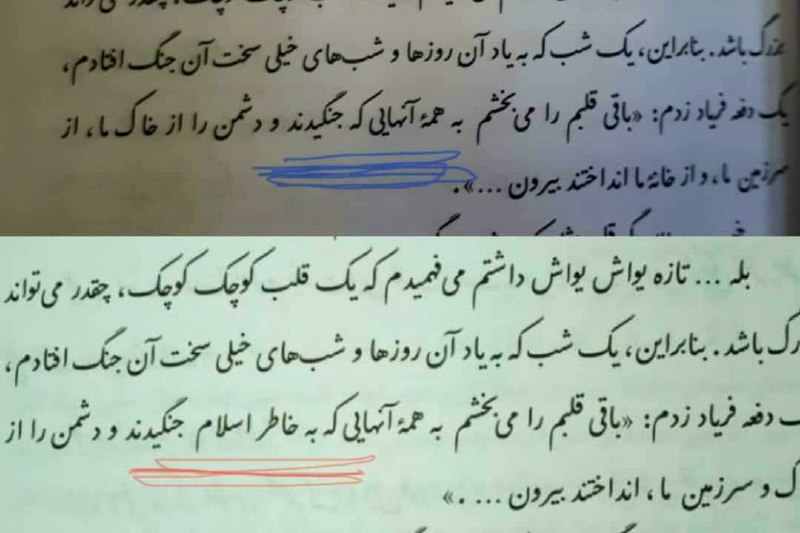 بزرگ باشد. بنابراین، یک شب که به یاد آن روزها و شب‌های خیلی سخت آن جنگ افتادم،
یک دفعه فریاد زدم: «باقی قلبم را می‌بخشم به همهٔ آنهایی که جنگیدند و دشمن را از خاک ما، از
سرزمین ما، و از خانهٔ ما انداختند بیرون ...».
بله ... تازه یواش یواش داشتم می‌فهمیدم که یک قلب کوچک کوچک، چقدر می‌تواند
رگ باشد. بنابراین، یک شب که به یاد آن روزها و شب‌های خیلی سخت آن جنگ افتادم،
دفعه فریاد زدم: «باقی قلبم را می‌بخشم به همهٔ آنهایی که به خاطر اسلام جنگیدند و دشمن را از
ک و سرزمین ما، انداختند بیرون ... .»